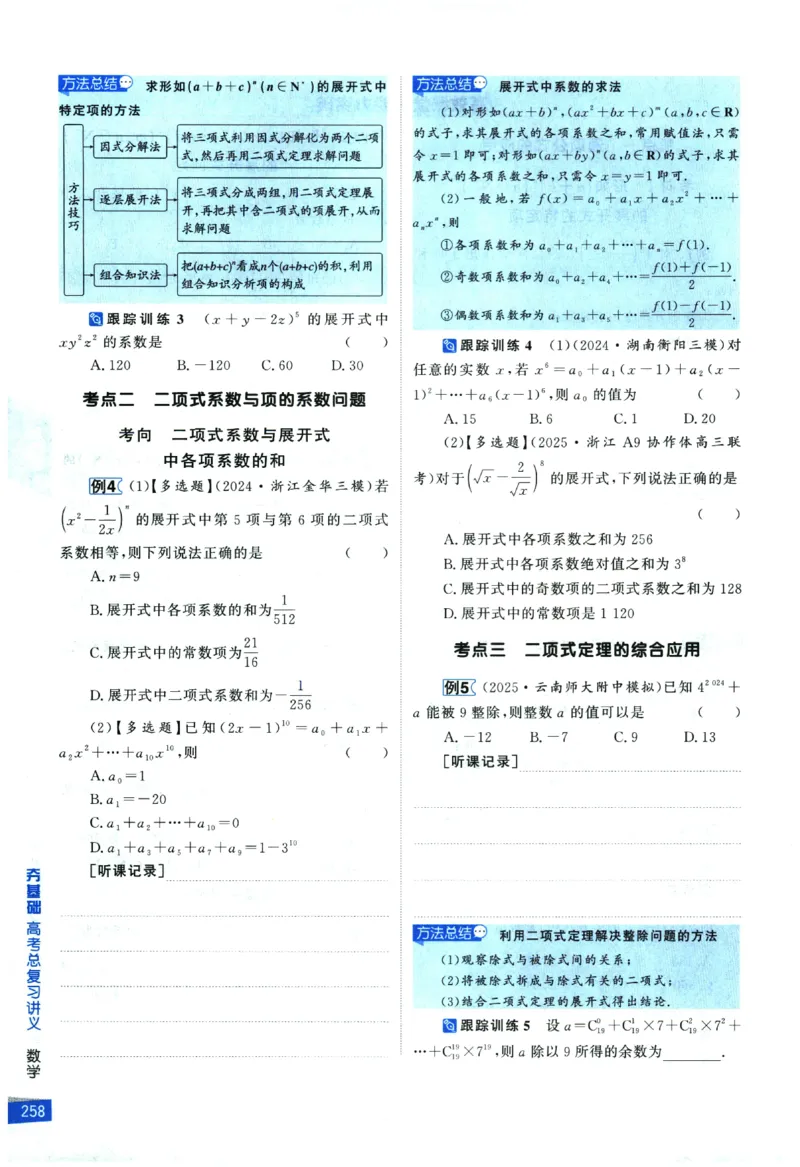 方法总结 求形如(a+b+c)ⁿ(n∈N*)的展开式中
特定项的方法
方法技巧
因式分解法
将三项式利用因式分解化为两个二项
式,然后再用二项式定理求解问题
逐层展开法
将三项式分成两组,用二项式定理展
开,再把其中含二项式的项展开,从而
求解问题
组合知识法
把(a+b+c)ⁿ看成n个(a+b+c)的积,利用
组合知识分析项的构成
跟踪训练 3 (x+y-2z)⁵ 的展开式中
xy²z² 的系数是 ( )
A.120 B.-120 C.60 D.30
考点二 二项式系数与项的系数问题
考向 二项式系数与展开式
中各项系数的和
例4 (1)【多选题】(2024·浙江金华三模)若
(x²-1/(2x))ⁿ 的展开式中第 5 项与第 6 项的二项式
系数相等,则下列说法正确的是 ( )
A.n=9
B.展开式中各项系数的和为1/512
C.展开式中的常数项为21/16
D.展开式中二项式系数和为-1/256
(2)【多选题】已知(2x-1)¹⁰=a₀+a₁x+
a₂x²+…+a₁₀x¹⁰,则 ( )
A.a₀=1
B.a₁=-20
C.a₁+a₂+…+a₁₀=0
D.a₁+a₃+a₅+a₇+a₉=1-3¹⁰
[听课记录]
方法总结 展开式中系数的求法
(1)对形如(ax+b)ⁿ,(ax²+bx+c)ᵐ(a,b,c∈R)
的式子,求其展开式的各项系数之和,常用赋值法,只需
令 x=1 即可;对形如(ax+by)ⁿ(a,b∈R)的式子,求其
展开式的各项系数之和,只需令 x=y=1 即可.
(2)一般地,若 f(x)=a₀+a₁x+a₂x²+…+
aₙxⁿ,则
①各项系数和为 a₀+a₁+a₂+…+aₙ=f(1).
②奇数项系数和为 a₀+a₂+a₄+…=(f(1)+f(-1))/2.
③偶数项系数和为 a₁+a₃+a₅+…=(f(1)-f(-1))/2.
跟踪训练 4 (1)(2024·湖南衡阳三模)对
任意的实数 x,若 x⁶=a₀+a₁(x-1)+a₂(x-
1)²+…+a₆(x-1)⁶,则 a₀ 的值为 ( )
A.15 B.6 C.1 D.20
(2)【多选题】(2025·浙江 A9 协作体高三联
考)对于(√x-2/√x)⁸ 的展开式,下列说法正确的是
( )
A.展开式中各项系数之和为 256
B.展开式中各项系数绝对值之和为 3⁸
C.展开式中的奇数项的二项式系数之和为 128
D.展开式中的常数项是 1 120
考点三 二项式定理的综合应用
例5 (2025·云南师大附中模拟)已知 4²⁰²⁴+
a 能被 9 整除,则整数 a 的值可以是 ( )
A.-12 B.-7 C.9 D.13
[听课记录]
方法总结 利用二项式定理解决整除问题的方法
(1)观察除式与被除式间的关系;
(2)将被除式拆成与除式有关的二项式;
(3)结合二项式定理的展开式得出结论.
跟踪训练 5 设 a=C₁₉⁰+C₁₉¹×7+C₁₉²×7²+
…+C₁₉¹⁹×7¹⁹,则 a 除以 9 所得的余数为______.
夯基础 高考总复习讲义 数学
258